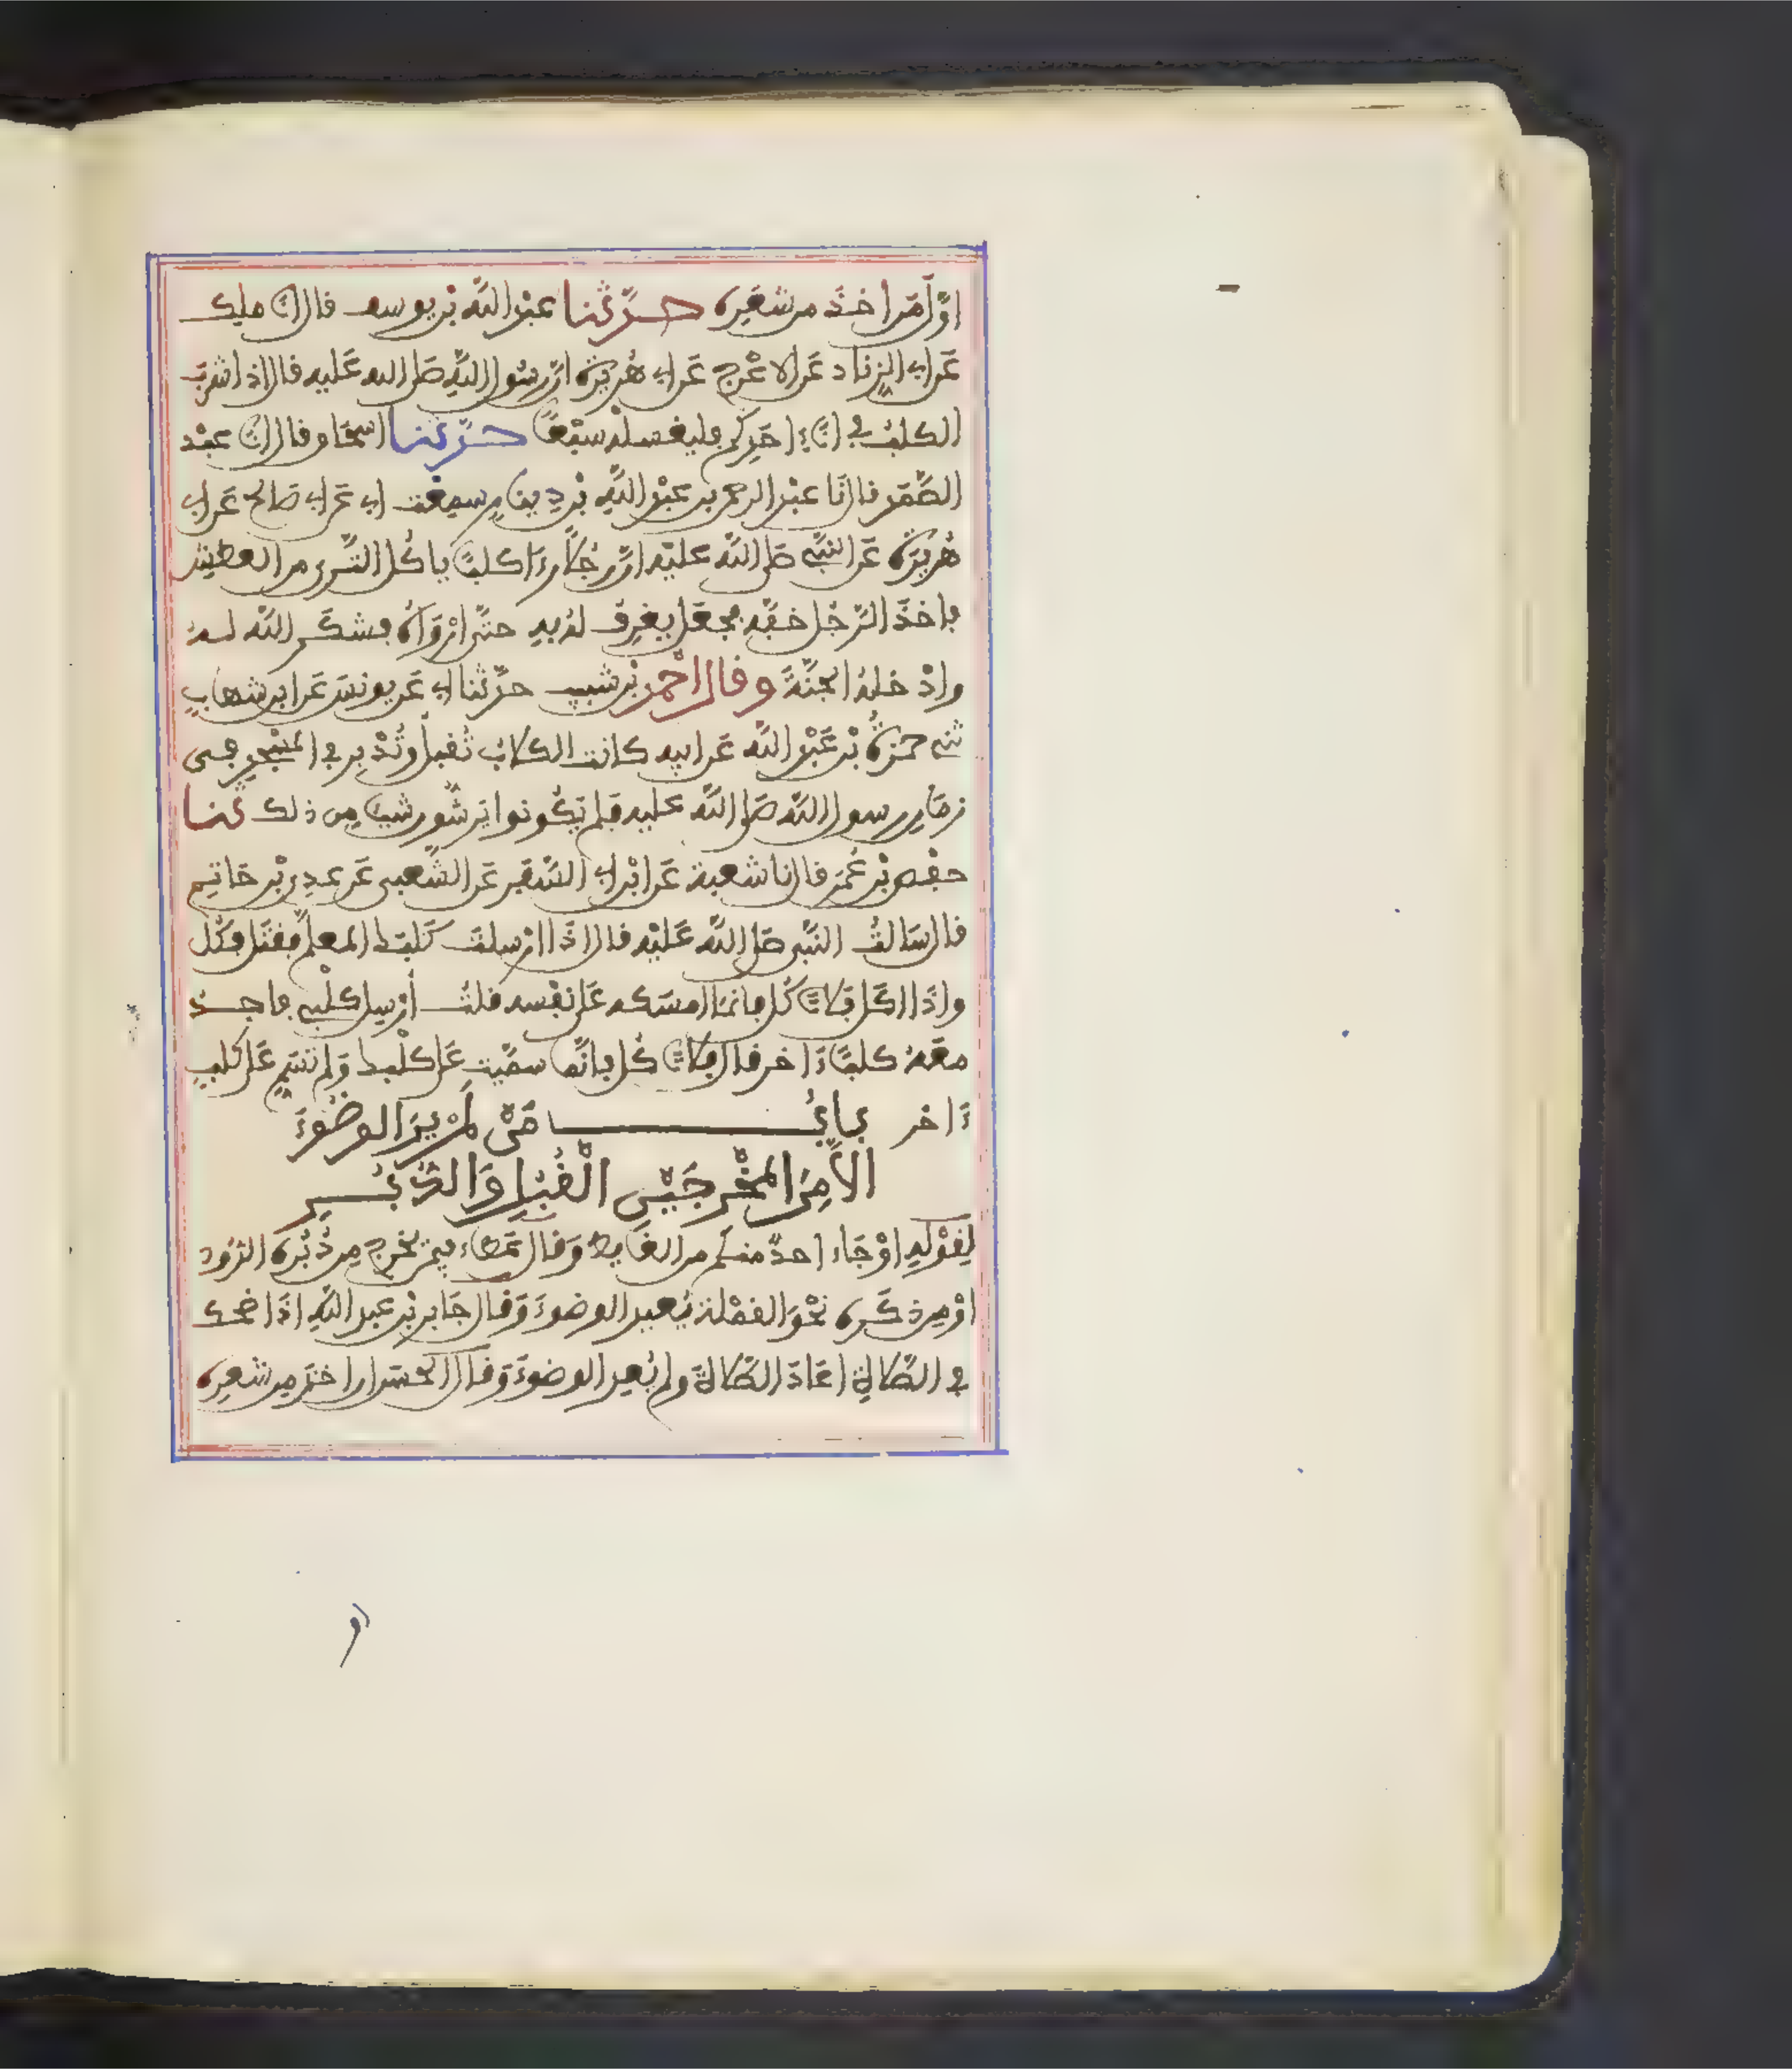 اوّل من اخذ من شعره حدّثنا عبد الله بن يوسف قال انا ملك
عن ابي الزناد عن الاعرج عن ابي هريرة انّ رسول الله صلى الله عليه قال اذا شرب
الكلب في اناء احدكم فليغسله سبعًا حدّثنا اسحاق قال انا عبد
الصّمد قال نا عبد الرحمن بن عبد الله بن دينار سمعت ابي عن ابي صالح عن ابي
هريرة عن النبي صلى الله عليه انّ رجلًا رءا كلبًا ياكل الثّرى من العطش
فاخذ الرّجل خفّه فجعل يغرف له به حتّى ارواه فشكر الله له
وادخله الجنّة وقال احمد بن شبيب حدّثنا ابي عن يونس عن ابن شهاب
ثني حمزة بن عبد الله عن ابيه كانت الكلاب تقبل وتدبر في المسجد في
زمان رسول الله صلى الله عليه فلم يكونوا يرشّون شيئا من ذلك ثنا
حفص بن عمر قال نا شعبة عن ابن ابي السّفر عن الشّعبي عن عدي بن حاتم
قال سالت النبي صلى الله عليه قال اذا ارسلت كلبك المعلّم فقتل فكل
واذا اكل فلا تاكل فانما امسكه على نفسه قلت أرسل كلبي فاجد
معه كلبًا ءاخر قال فلا تاكل فانّما سمّيت على كلبك ولم تسمّ على كلب
ءاخر باب من لم ير الوضوء
الّا من المخرجين القبل والدّبر
لقوله او جاء احد منكم من الغايط وقال عطاء فيمن يخرج من دبره الدّود
او من ذكره نحو القملة يعيد الوضوء وقال جابر بن عبد الله اذا ضحك
في الصّلاة اعاد الصّلاة ولم يعد الوضوء وقال الحسن ان اخذ من شعره
او